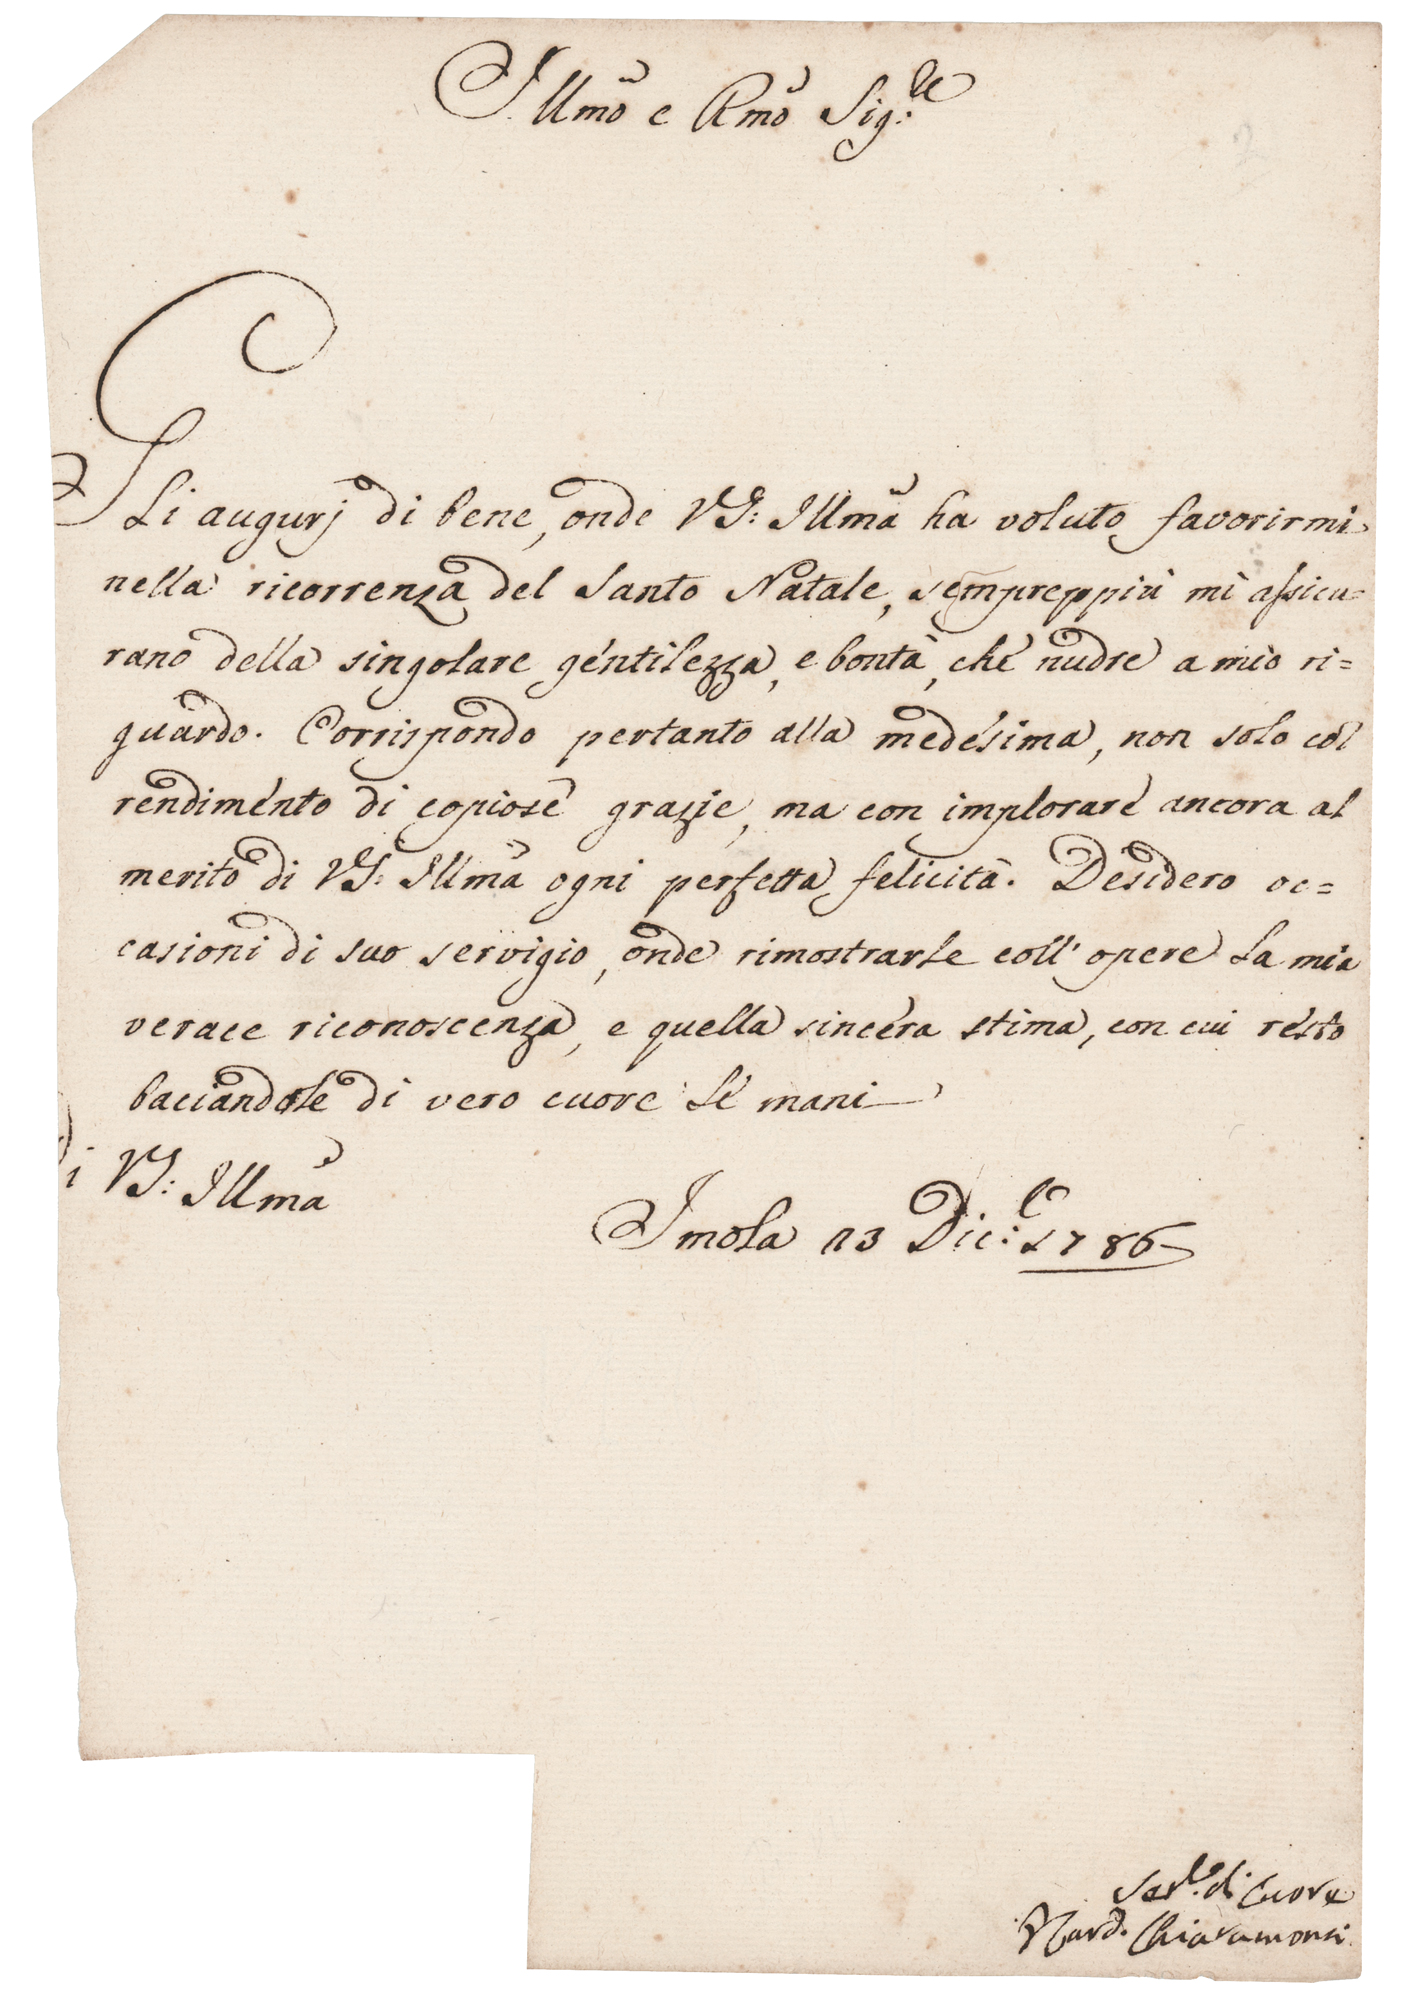 Illmo e Rmo Sig:re
Gli augurj di bene, onde VS: Illma ha voluto favorirmi
nella ricorrenza del Santo Natale, sempreppiù mi assicu=
rano della singolare gentilezza, e bontà, che nudre a mio ri=
guardo. Corrispondo pertanto alla medesima, non solo col
rendimento di copiose grazie, ma con implorare ancora al
merito di VS: Illma ogni perfetta felicità. Desidero oc=
casioni di suo servigio, onde rimostrarle coll'opere la mia
verace riconoscenza, e quella sincera stima, con cui resto
baciandole di vero cuore le mani
Di VS: Illma
Imola 23 Dic:e 1786
di Cuore
Card. Chiaramonti